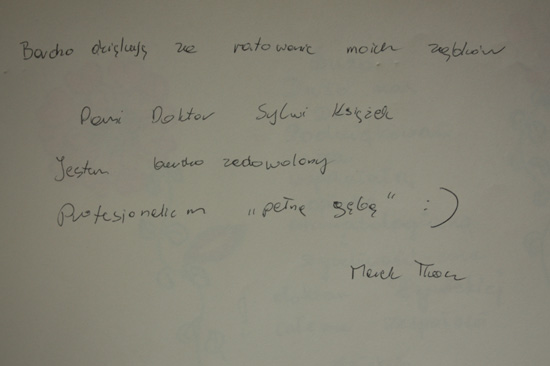 Bardzo dziękuję za ratowanie moich ząbków
Pani Doktor Sylwi Książek
Jestem bardzo zadowolony
Profesjonalizm "pełną gębą" :)
Marek